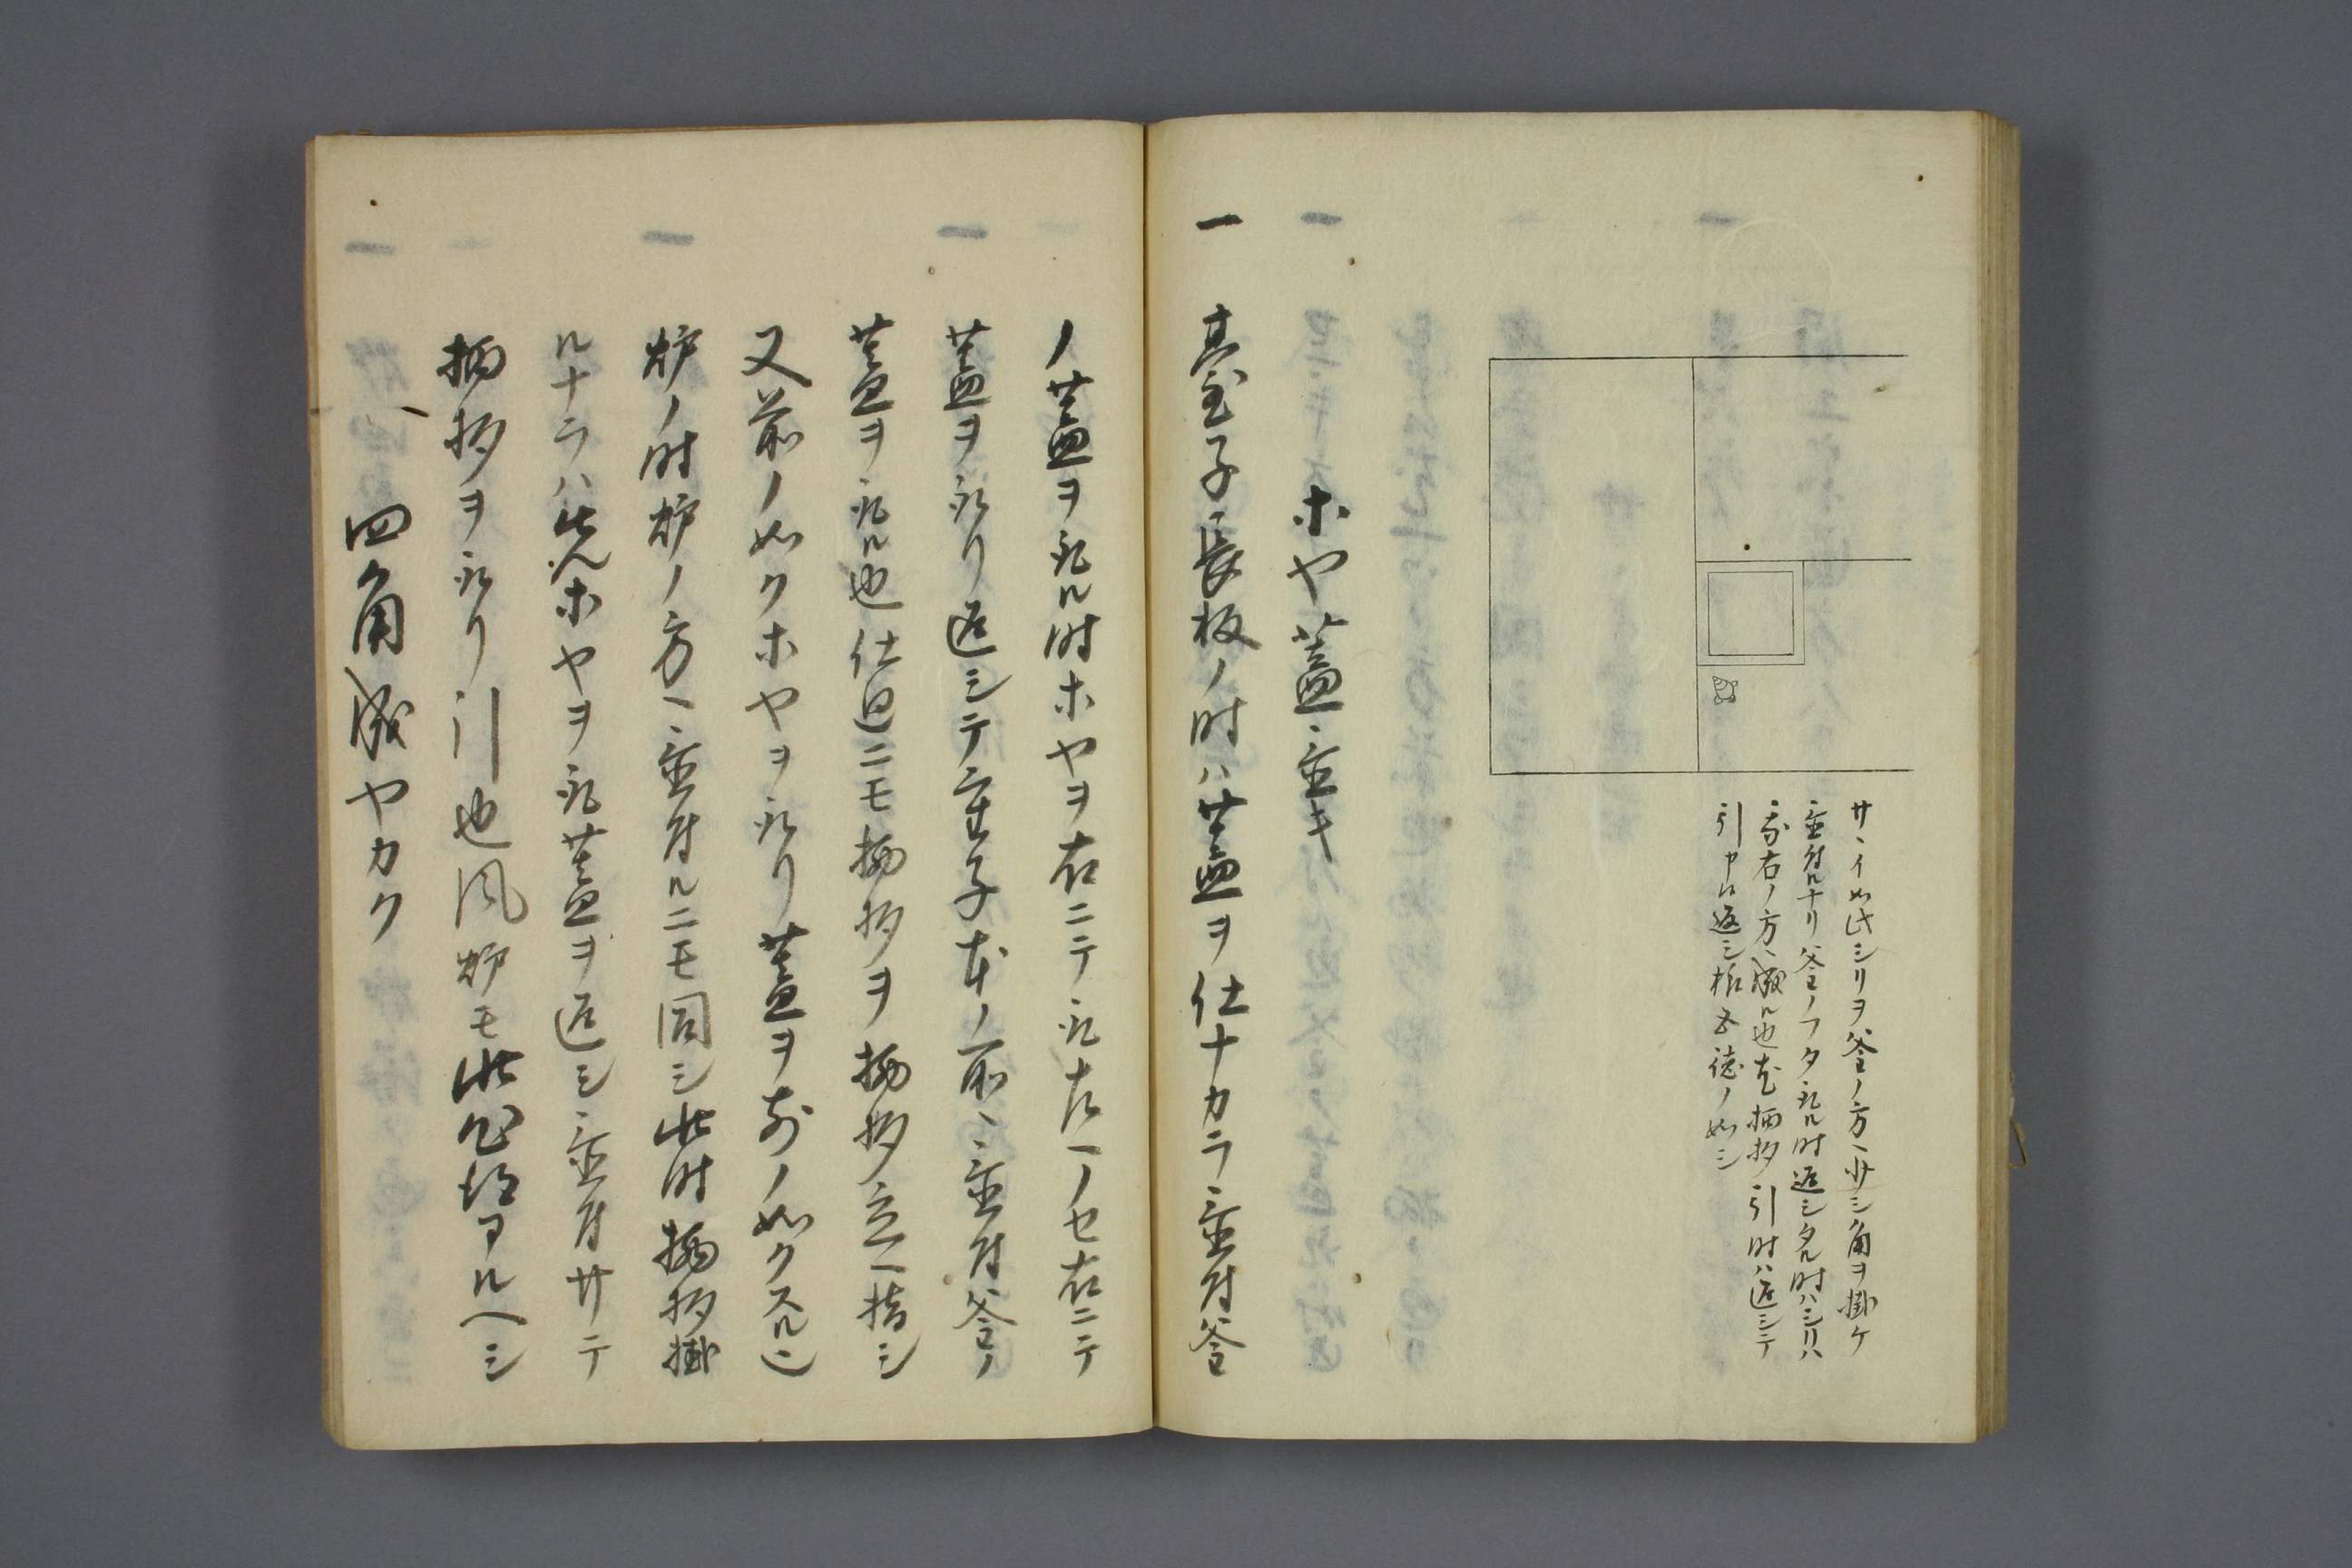 サヽイ如此シリヲ釜ノ方ヘ少シ角ヲ掛ケ
置付ルナリ釜ノフタ取ル時返シタル時ハシリハ
客右ノ方ヘ成ル也尤柄杓引時ハ返シテ
引ヤハ返シ様五徳ノ如シ
ホヤ蓋置キ
一 真台子長板ノ時ハ蓋ヲ仕ナカラ置付釜
ノ蓋ヲ取ル時ホヤヲ右ニテ取左ヘノセ右ニテ
蓋ヲ取リ返シテ台子本ノ前ヘ置付釜ノ
蓋ヲ取ル也仕廻ニモ柄杓ヲ柄杓立ヘ指シ
又前ノ如クホヤヲ取リ蓋ヲ前ノ如クスル也
炉ノ時炉ノ方ヘ置付ルニモ同シ此時柄杓掛
ルナラハ先ホヤヲ取蓋ヲ返シ置付サテ
柄杓ヲ取リ引也風炉モ此心得アルヘシ
四角成ヤカク